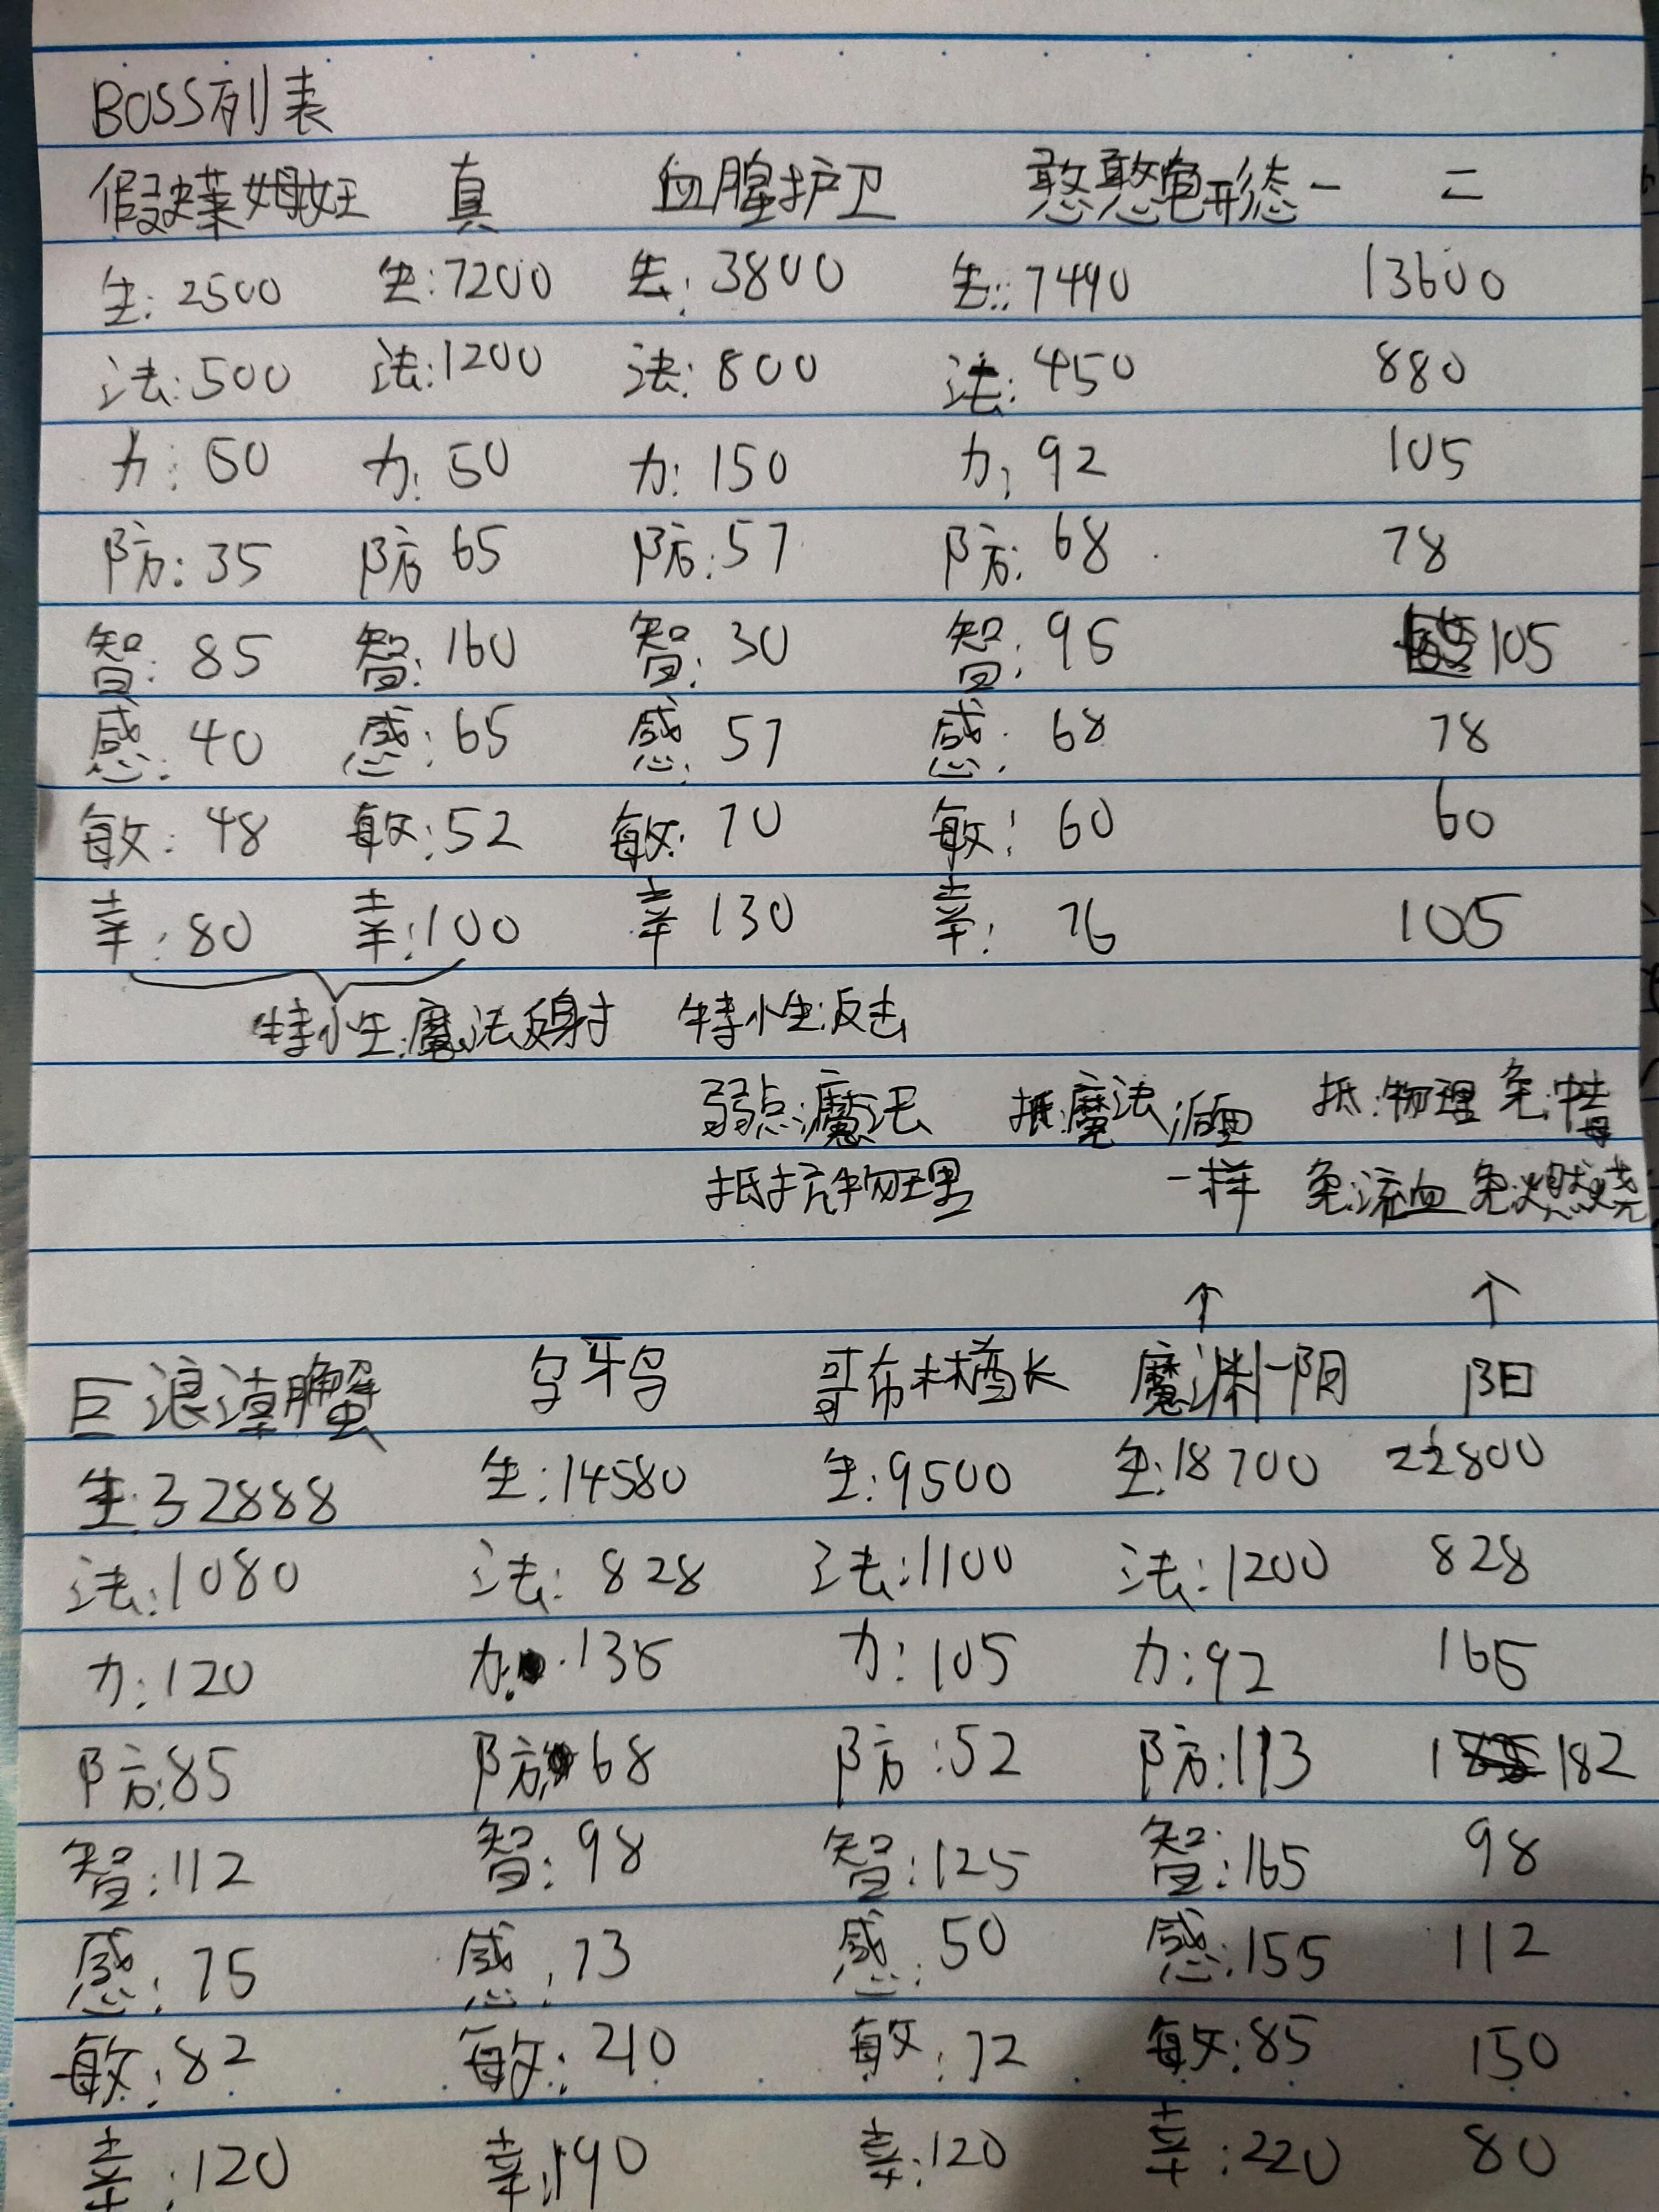 BOSS列表
假史莱姆女王 真 血腥护卫 憨憨龟形态一 二
生:2500 生:7200 生:3800 生:7490 13600
法:500 法:1200 法:800 法:450 880
力:50 力:50 力:150 力:92 105
防:35 防65 防:57 防:68 78
智:85 智:160 智:30 智:95 105
感:40 感:65 感:57 感:68 78
敏:48 敏:52 敏:70 敏:60 60
幸:80 幸:100 幸130 幸:76 105
特性:魔法反射 特性:反击
弱点:魔法 抵:魔法 物理 免:中毒
抵抗:物理 一样 免:流血 免:燃烧
巨浪漠蟹 乌牙鸟 哥布林酋长 魔渊-阴 阳
生:32888 生:14580 生:9500 生:18700 22800
法:1080 法:828 法:1100 法:1200 828
力:120 力:135 力:105 力:92 165
防:85 防:68 防:52 防:113 182
智:112 智:98 智:125 智:165 98
感:75 感:73 感:50 感:155 112
敏:82 敏:210 敏:72 敏:85 150
幸:120 幸:190 幸:120 幸:220 80